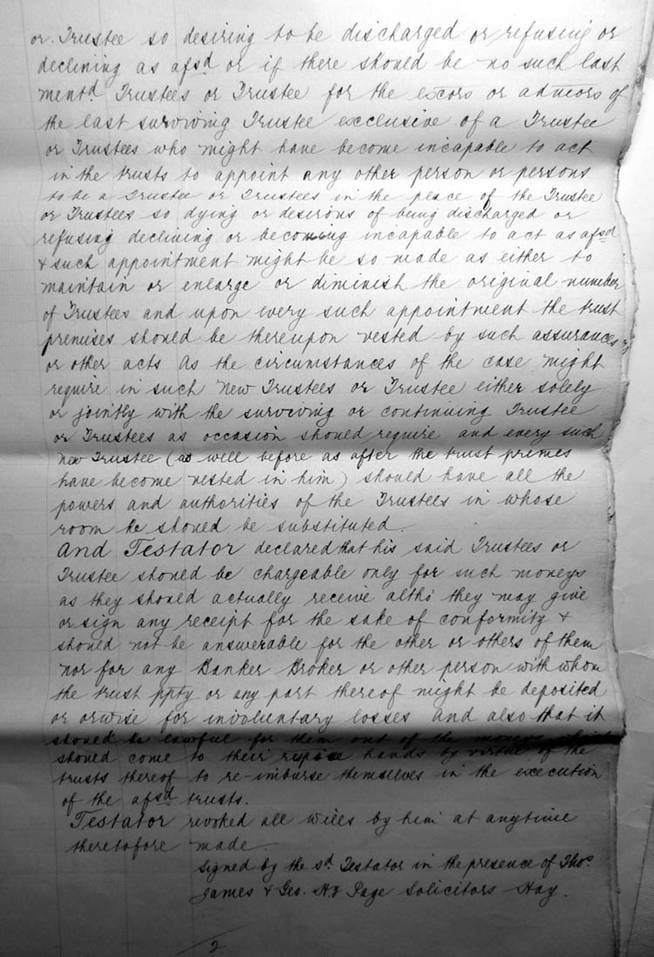 or Trustee so desiring to be discharged or refusing or
declining as afsd or if there should be no such last
mentd Trustees or Trustee for the excors or admors of
the last surviving Trustee exclusive of a Trustee
or Trustees who might have become incapable to act
in the trusts to appoint any other person or persons
to be a Trustee or Trustees in the place of the Trustee
or Trustees so dying or desirous of being discharged or
refusing declining or becoming incapable to act as afsd
& such appointment might be so made as either to
maintain or enlarge or diminish the original number
of Trustees and upon every such appointment the trust
premises should be thereupon vested by such assurances
or other acts as the circumstances of the case might
require in such new Trustees or Trustee either solely
or jointly with the surviving or continuing Trustee
or Trustees as occasion should require and every such
new Trustee (as well before as after the trust premes
have become vested in him) should have all the
powers and authorities of the Trustees in whose
room he should be substituted.
And Testator declared that his said Trustees or
Trustee should be chargeable only for such moneys
as they should actually receive altho they may give
or sign any receipt for the sake of conformity &
should not be answerable for the other or others of them
nor for any Banker Broker or other person with whom
the trust ppty or any part thereof might be deposited
or orwise for involuntary losses And also that it
should be lawful for them out of the moneys which
should come to their respive hands by virtue of the
trusts thereof to re-imburse themselves in the execution
of the afsd trusts.
Testator revoked all wills by him at anytime
theretofore made.
Signed by the sd Testator in the presence of Thos.
James & Geo. H. Page Solicitors Hay.
2